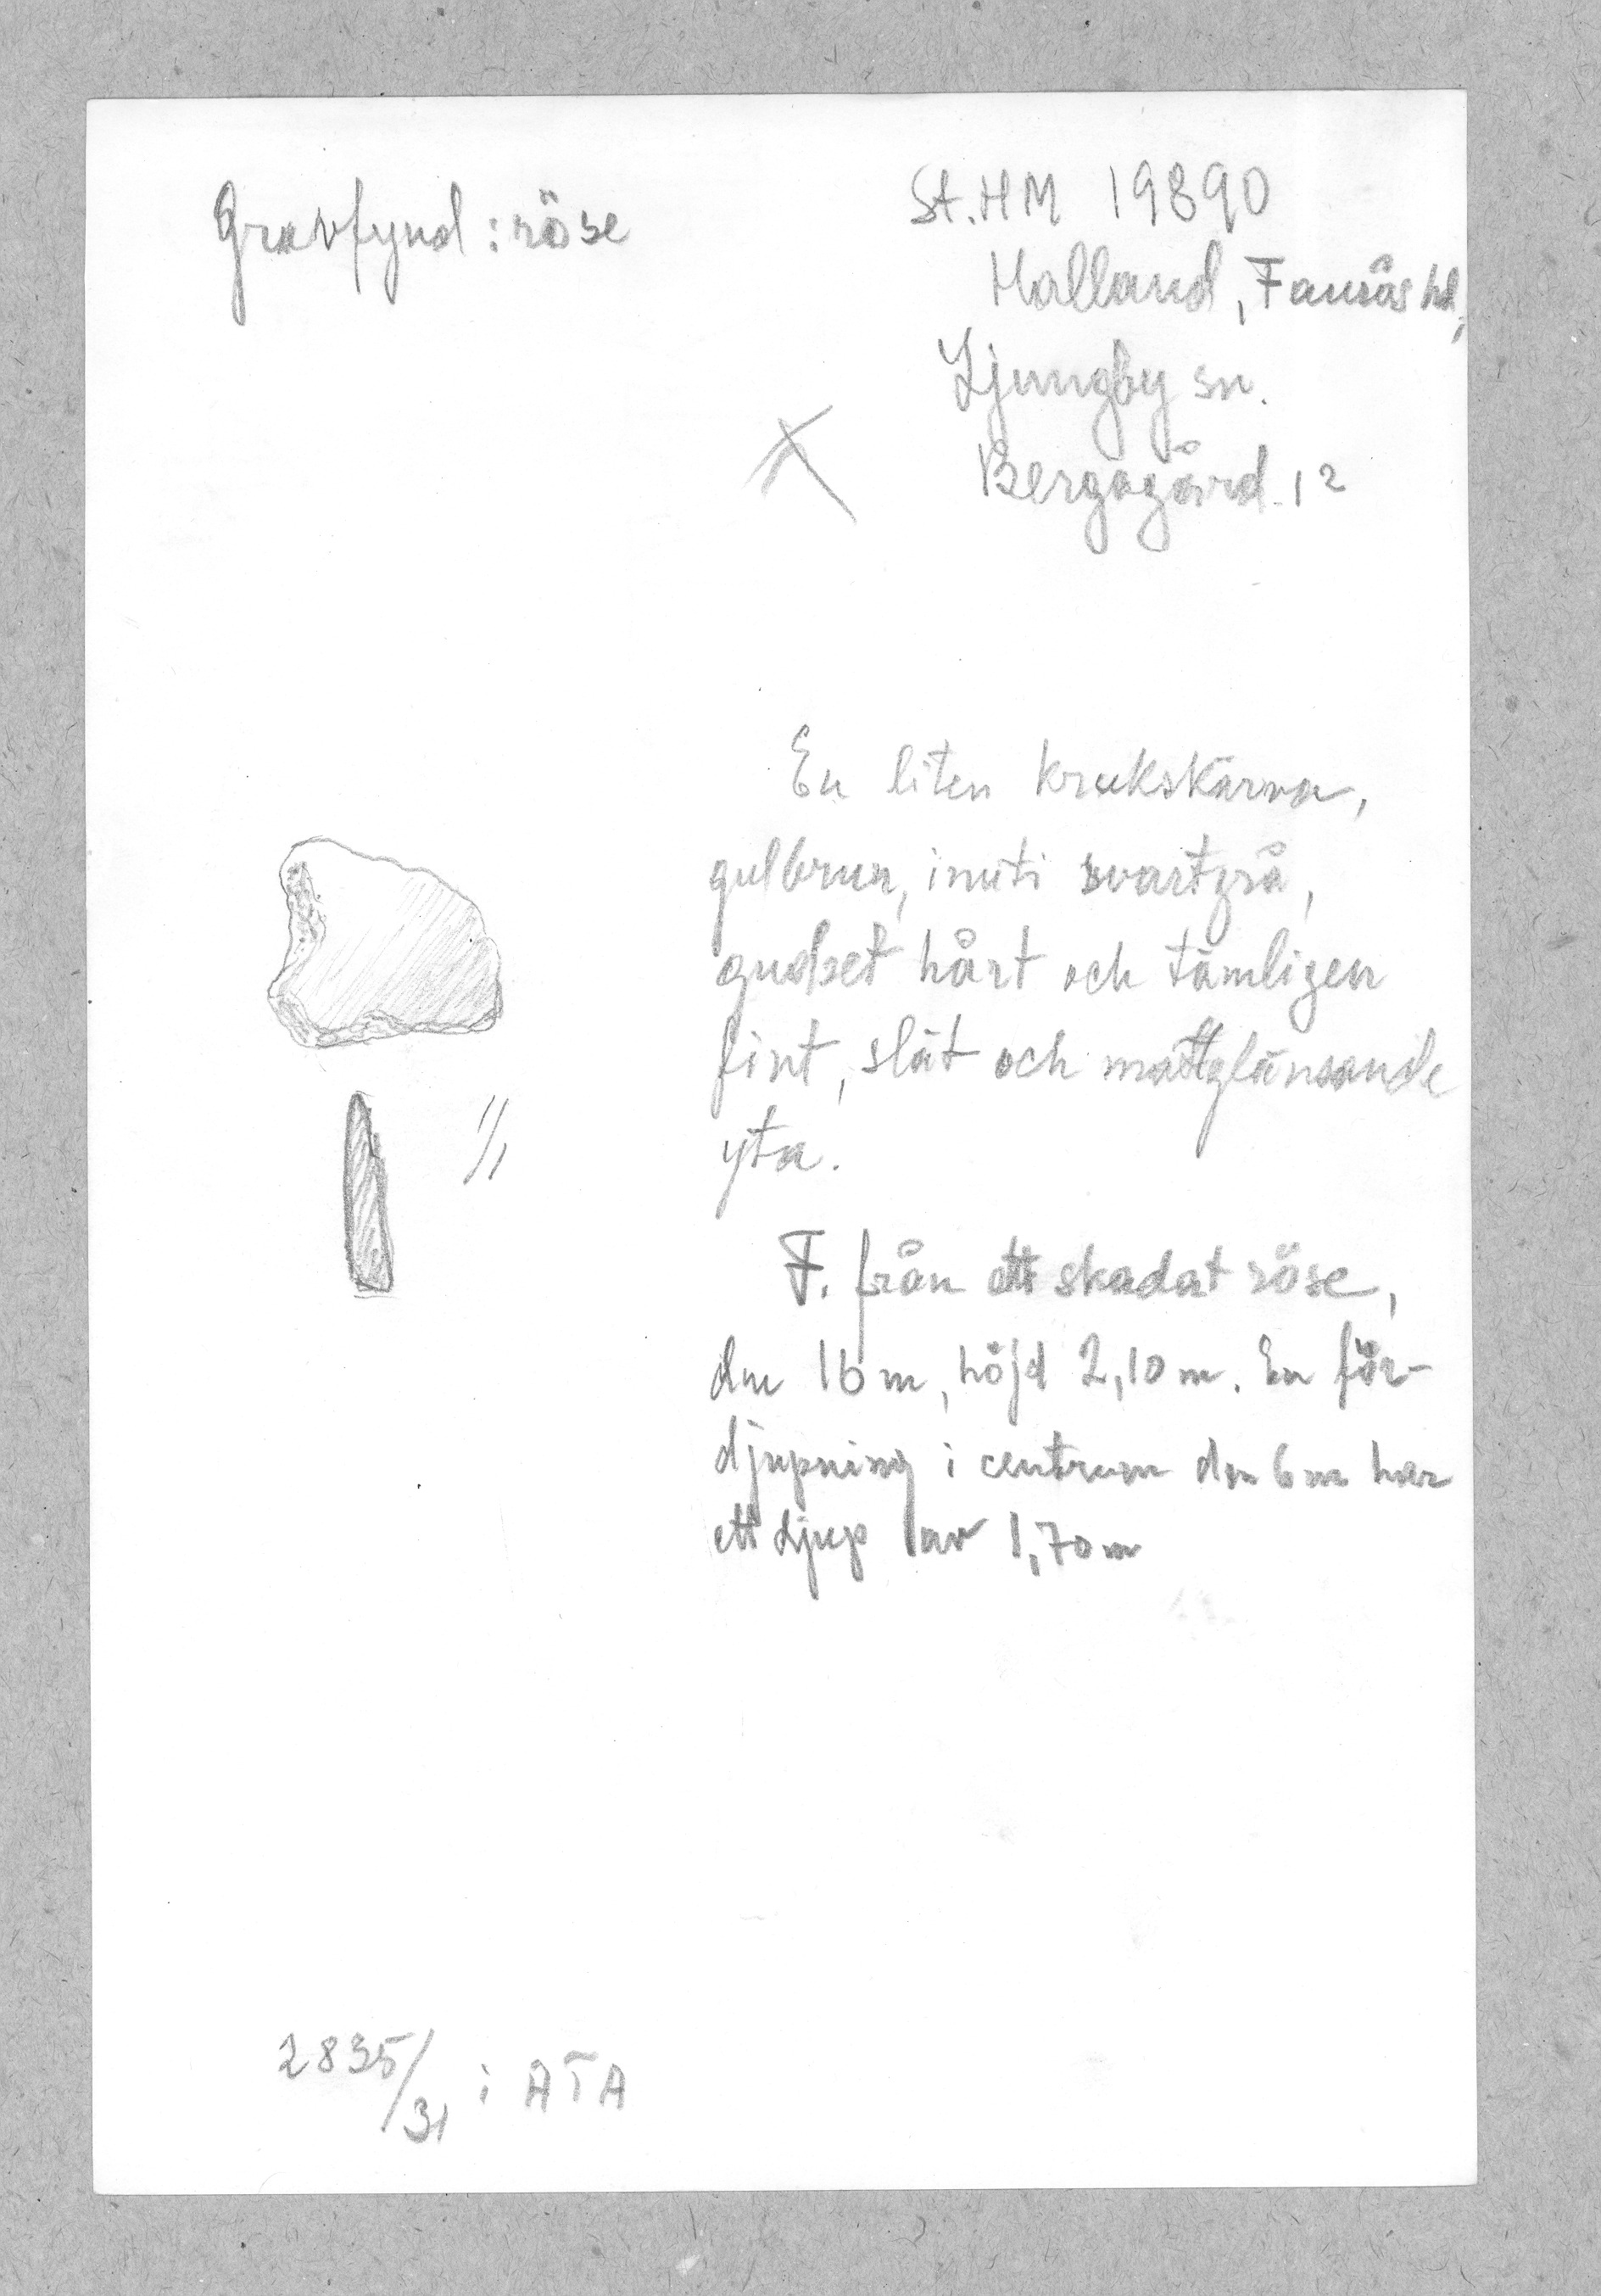 Gravfynd: röse
St. HM 19890
Halland, Faurås hd,
Ljungby sn.
Bergagård 12
En liten krukskärva,
gulbrun, inuti svartgrå,
godset hårt och tämligen
fint, slät och mattglänsande
yta.
1/1
F. från ett skadat röse,
dm 16 m, höjd 2,10 m. En för-
djupning i centrum dm 6 m har
ett djup av 1,70 m
2835/31 i ATA